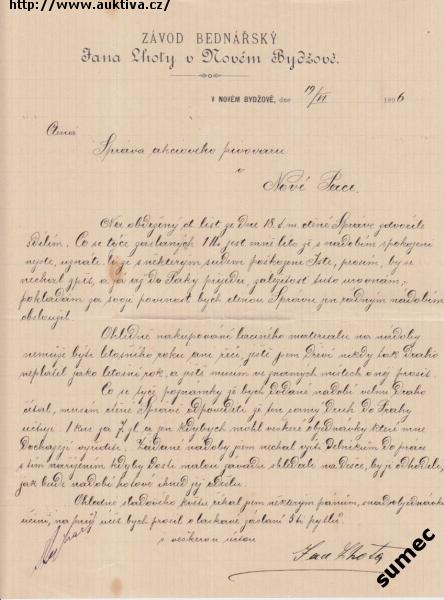 http://www.auktiva.cz/
ZÁVOD BEDNÁŘSKÝ
Jana Lhoty v Novém Bydžově.
V NOVÉM BYDŽOVĚ, dne 19/XI 1896
Správa akciového pivovaru
v
Nové Pace.
Na obdržený ct. list ze dne 18. t. m. ctěné Správě dovoluji
sdělím. Co se týče zaslaných 1 jest mně líto že s nádobím spokojeni
nejste, že s některým sudem poškozeni jste, prosím, by se
nechal zpět, a já až do Paky přijedu, záležitost tuto urovnám;
pokládám za svoji povinnost bych ctěnou Správu jen řádným nádobím
obsloužil.
Ohledně nakupování laciného materialu na nádoby
nemůže býti letošního roku ani řeči, ještě jsem dříví nikdy tak draho
neplatil jako letošní rok, a ještě musím v místech o něj prosit.
Co se týče poznámky že bych dodané nádobí velmi draho
čítal, musím ctěné Správě odpověděti že jen samý druh do Prahy
účtuji 1 kus za 7 zl. a jen kdybych mohl veškeré objednávky které mně
docházejí vyříditi. Žádané nádoby jsem nechal dělníkům do práce
s tím nařízením kdyby dosti malou závadu shledali na desce, by ji odhodili,
jak bude nádobí hotové ihned jej odešlu.
Ohledně sladového květu říkal jsem některým pánům,
učiní, bych prosil o laskavé zaslání 5ti pytlů.
s veškerou úctou
Jan Lhota
sumec